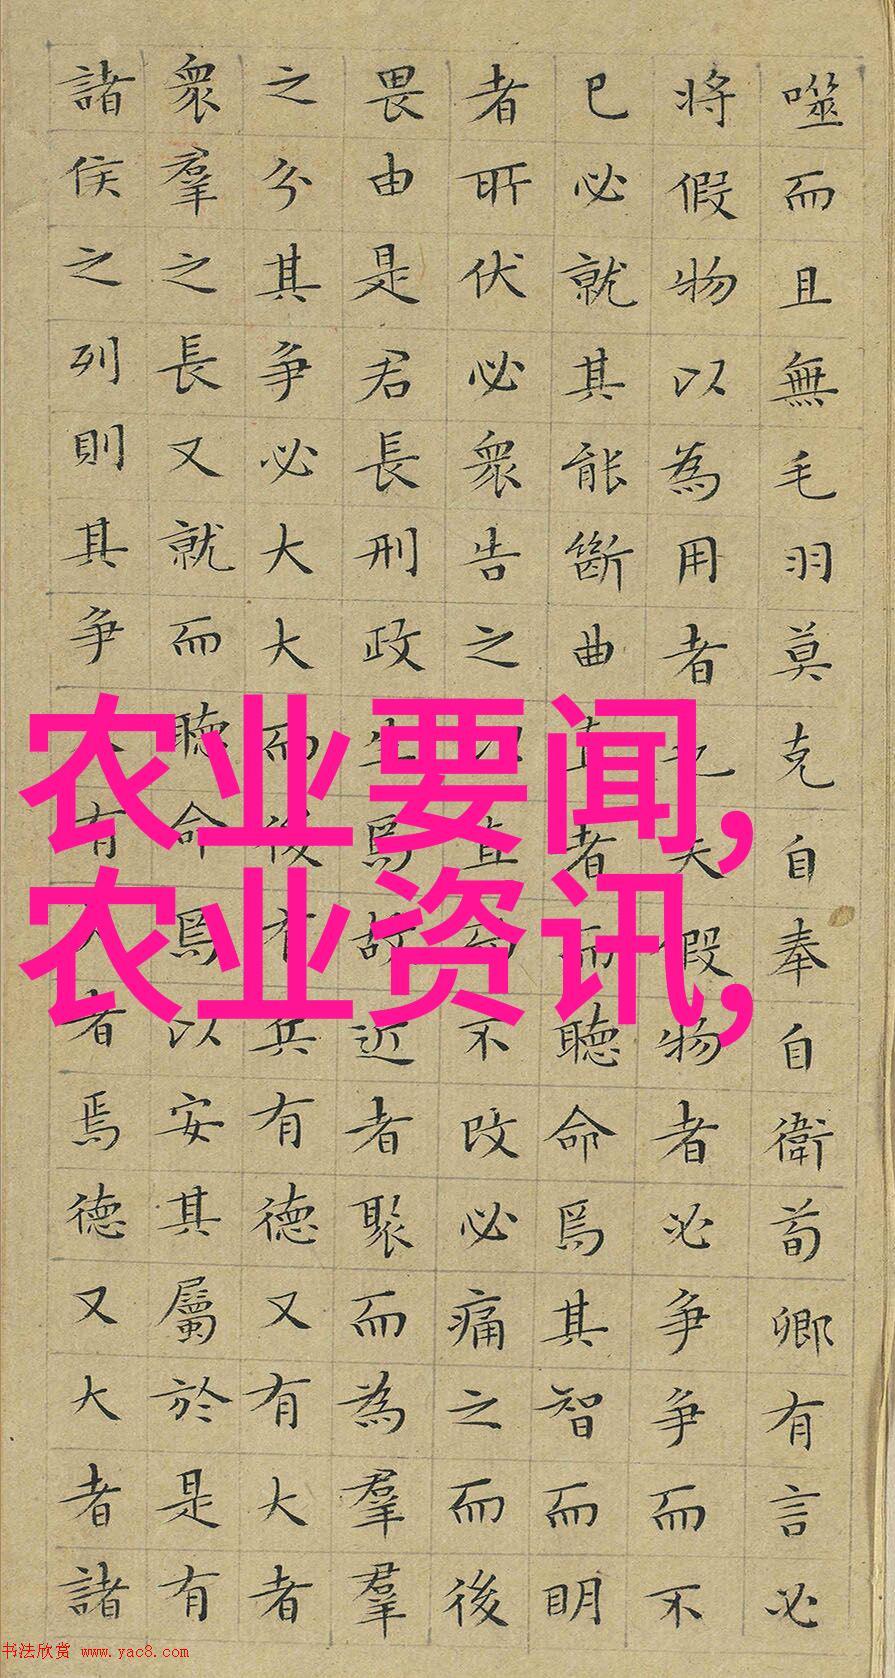 噬而且無毛羽莫克自奉自衛荀卿有言必
將假物以為用者也夫假物者必争争而不
已必就其能斷曲直者而聽命焉其智而明
者所伏必衆告之以直而不改必痛之而後
畏由是君長刑政生焉故近者聚而為羣羣
之分其争必大大而後有兵有德又有大者
衆羣之長又就而聽命焉以安其屬於是有
諸侯之列則其争有大者焉德又大者諸
农业要闻,
农业资讯,
书法欣赏 www.yac8.com